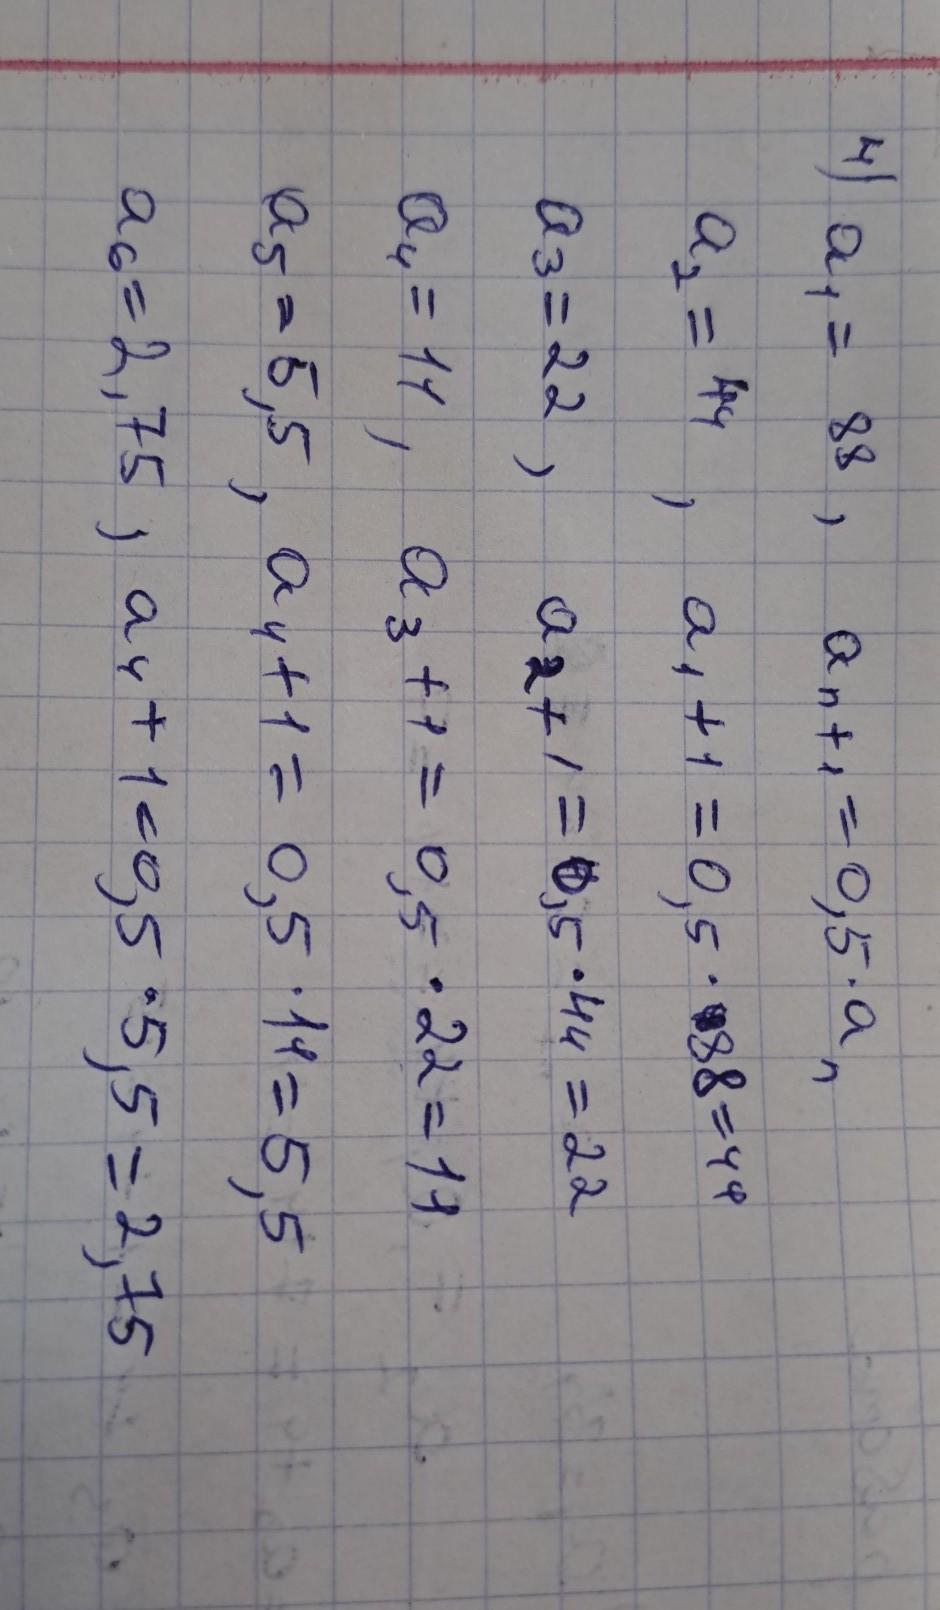 4) a₁ = 88, aₙ₊₁ = 0,5 · aₙ
a₂ = 44, a₁+1 = 0,5 · 88 = 44
a₃ = 22, a₂+1 = 0,5 · 44 = 22
a₄ = 11, a₃+1 = 0,5 · 22 = 11
a₅ = 5,5, a₄+1 = 0,5 · 11 = 5,5
a₆ = 2,75, a₄+1 = 0,5 · 5,5 = 2,75